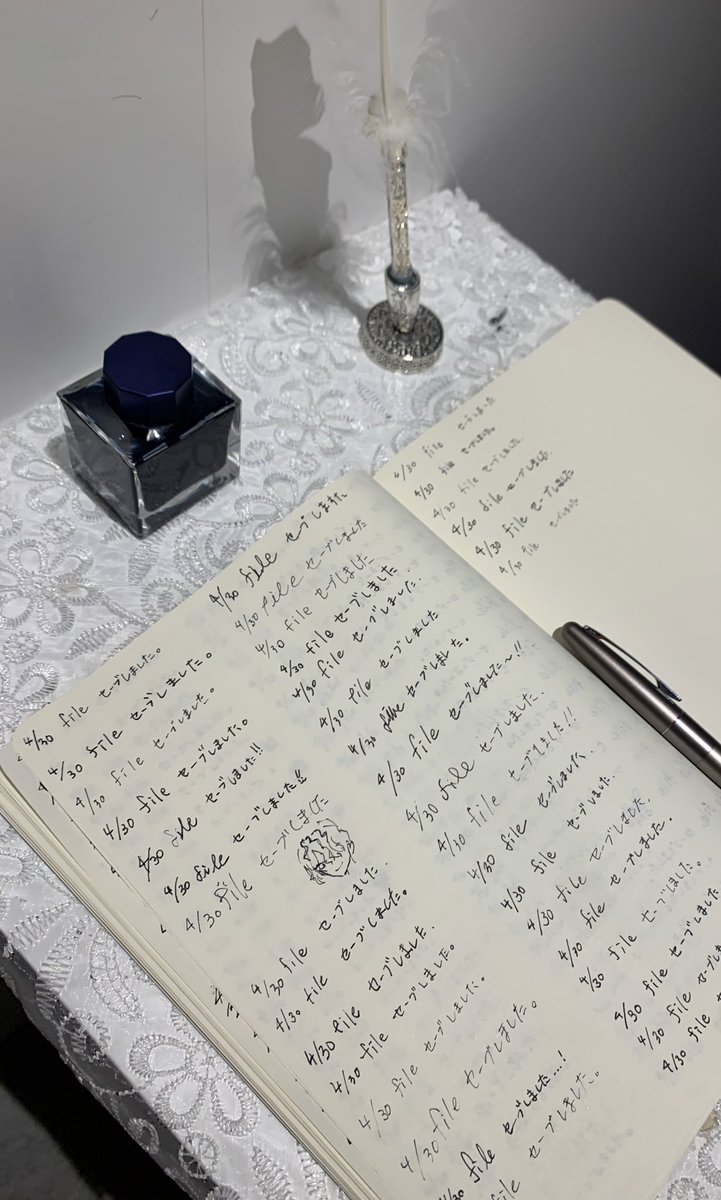 4/30 file セーブしました。
4/30 file セーブしました。
4/30 file セーブしました。
4/30 file セーブしました。
4/30 file セーブしました!!
4/30 file セーブしました!!
4/30 file セーブしました
4/30 file セーブしました.
4/30 file セーブしました。
4/30 file セーブしました.
4/30 file セーブしました。
4/30 file セーブしました.
4/30 file セーブしました。
4/30 file セーブしました...!
file セーブしました。
4/30 file セーブしました.
4/30 file セーブしました
4/30 file セーブしました
4/30 file セーブしました
4/30 file セーブしました.
4/30 file セーブしました
4/30 file セーブしました。
4/30 file セーブしました〜!!
4/30 file セーブしました.
4/30 file セーブしました!!
4/30 file セーブしました.
4/30 file セーブしました.
4/30 file セーブしました.
4/30 file セーブしました.
4/30 file セーブしました。
4/30 file セーブしました
4/30 file セーブしました
4/30 file
4/30 file セーブしました
4/30 file セーブしました.
4/30 file セーブしました.
4/30 file セーブしました.
4/30 file セーブしました
4/30 file セーブしました